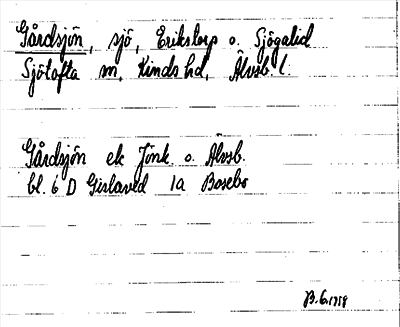 Gårdsjön, sjö, Erikstorp o. Sjögalid
Sjötofta sn, Kinds hd, Älvsb. l.
Gårdsjön ek Jönk o. Älvsb.
bl. 6 D Gislaved 1a Bosebo
B.G. 1978